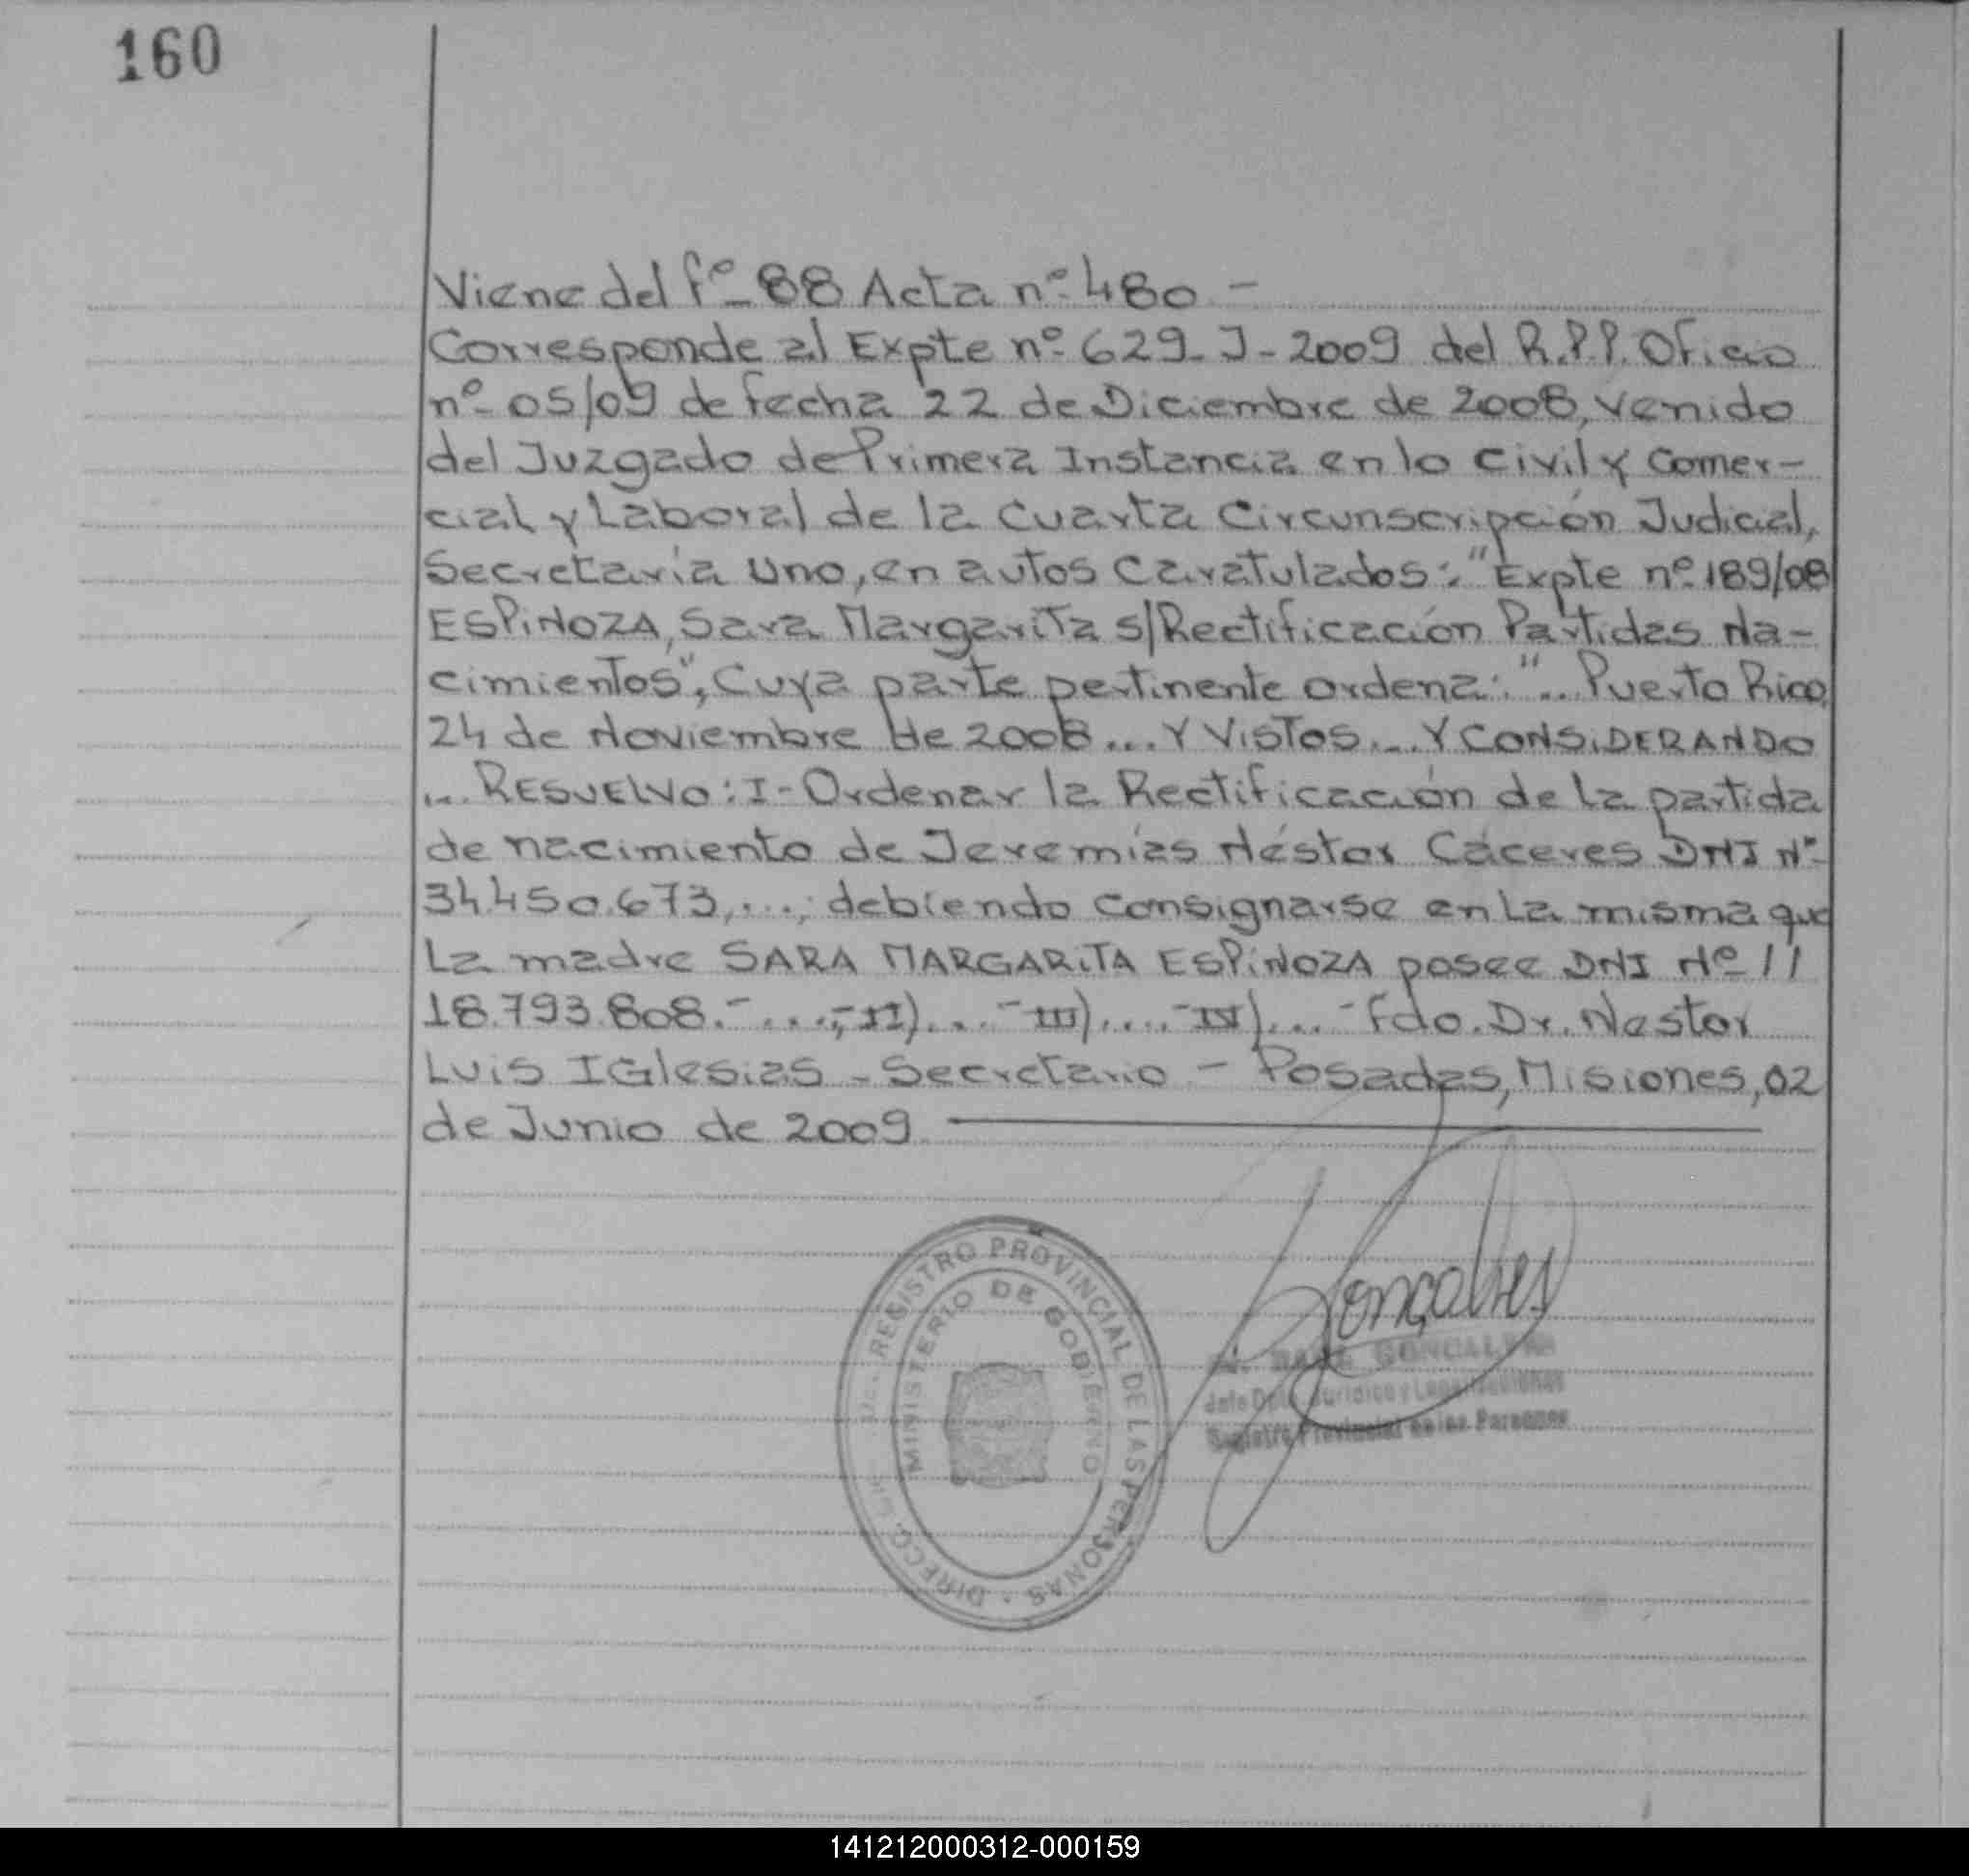 160
Viene del fº 88 Acta nº 480 -
Corresponde al Expte nº 629-J-2009 del R.P.P. Oficio
nº 05/09 de fecha 22 de Diciembre de 2008, venido
del Juzgado de Primera Instancia en lo Civil y Comer-
cial y Laboral de la Cuarta Circunscripción Judicial,
Secretaría Uno, en autos caratulados: "Expte nº 189/08
ESPINOZA, Sara Margarita s/Rectificación Partidas Na-
cimientos", cuya parte pertinente ordena: "... Puerto Rico,
24 de Noviembre de 2008... Y VISTOS... Y CONSIDERANDO
... RESUELVO: I- Ordenar la Rectificación de la partida
de nacimiento de Jeremías Néstor Cáceres DNI Nº
34.450.673, ...; debiendo consignarse en la misma que
la madre SARA MARGARITA ESPINOZA posee DNI Nº //
18.793.808.- ...,-II)... -III).... -IV)... - Fdo. Dr. Nestor
Luis Iglesias - Secretario - Posadas, Misiones, 02
de Junio de 2009.
REGISTRO PROVINCIAL DE LAS PERSONAS
MINISTERIO DE GOBIERNO
Gonçalves
GONCALVES
Registro Provincial de las Personas
141212000312-000159